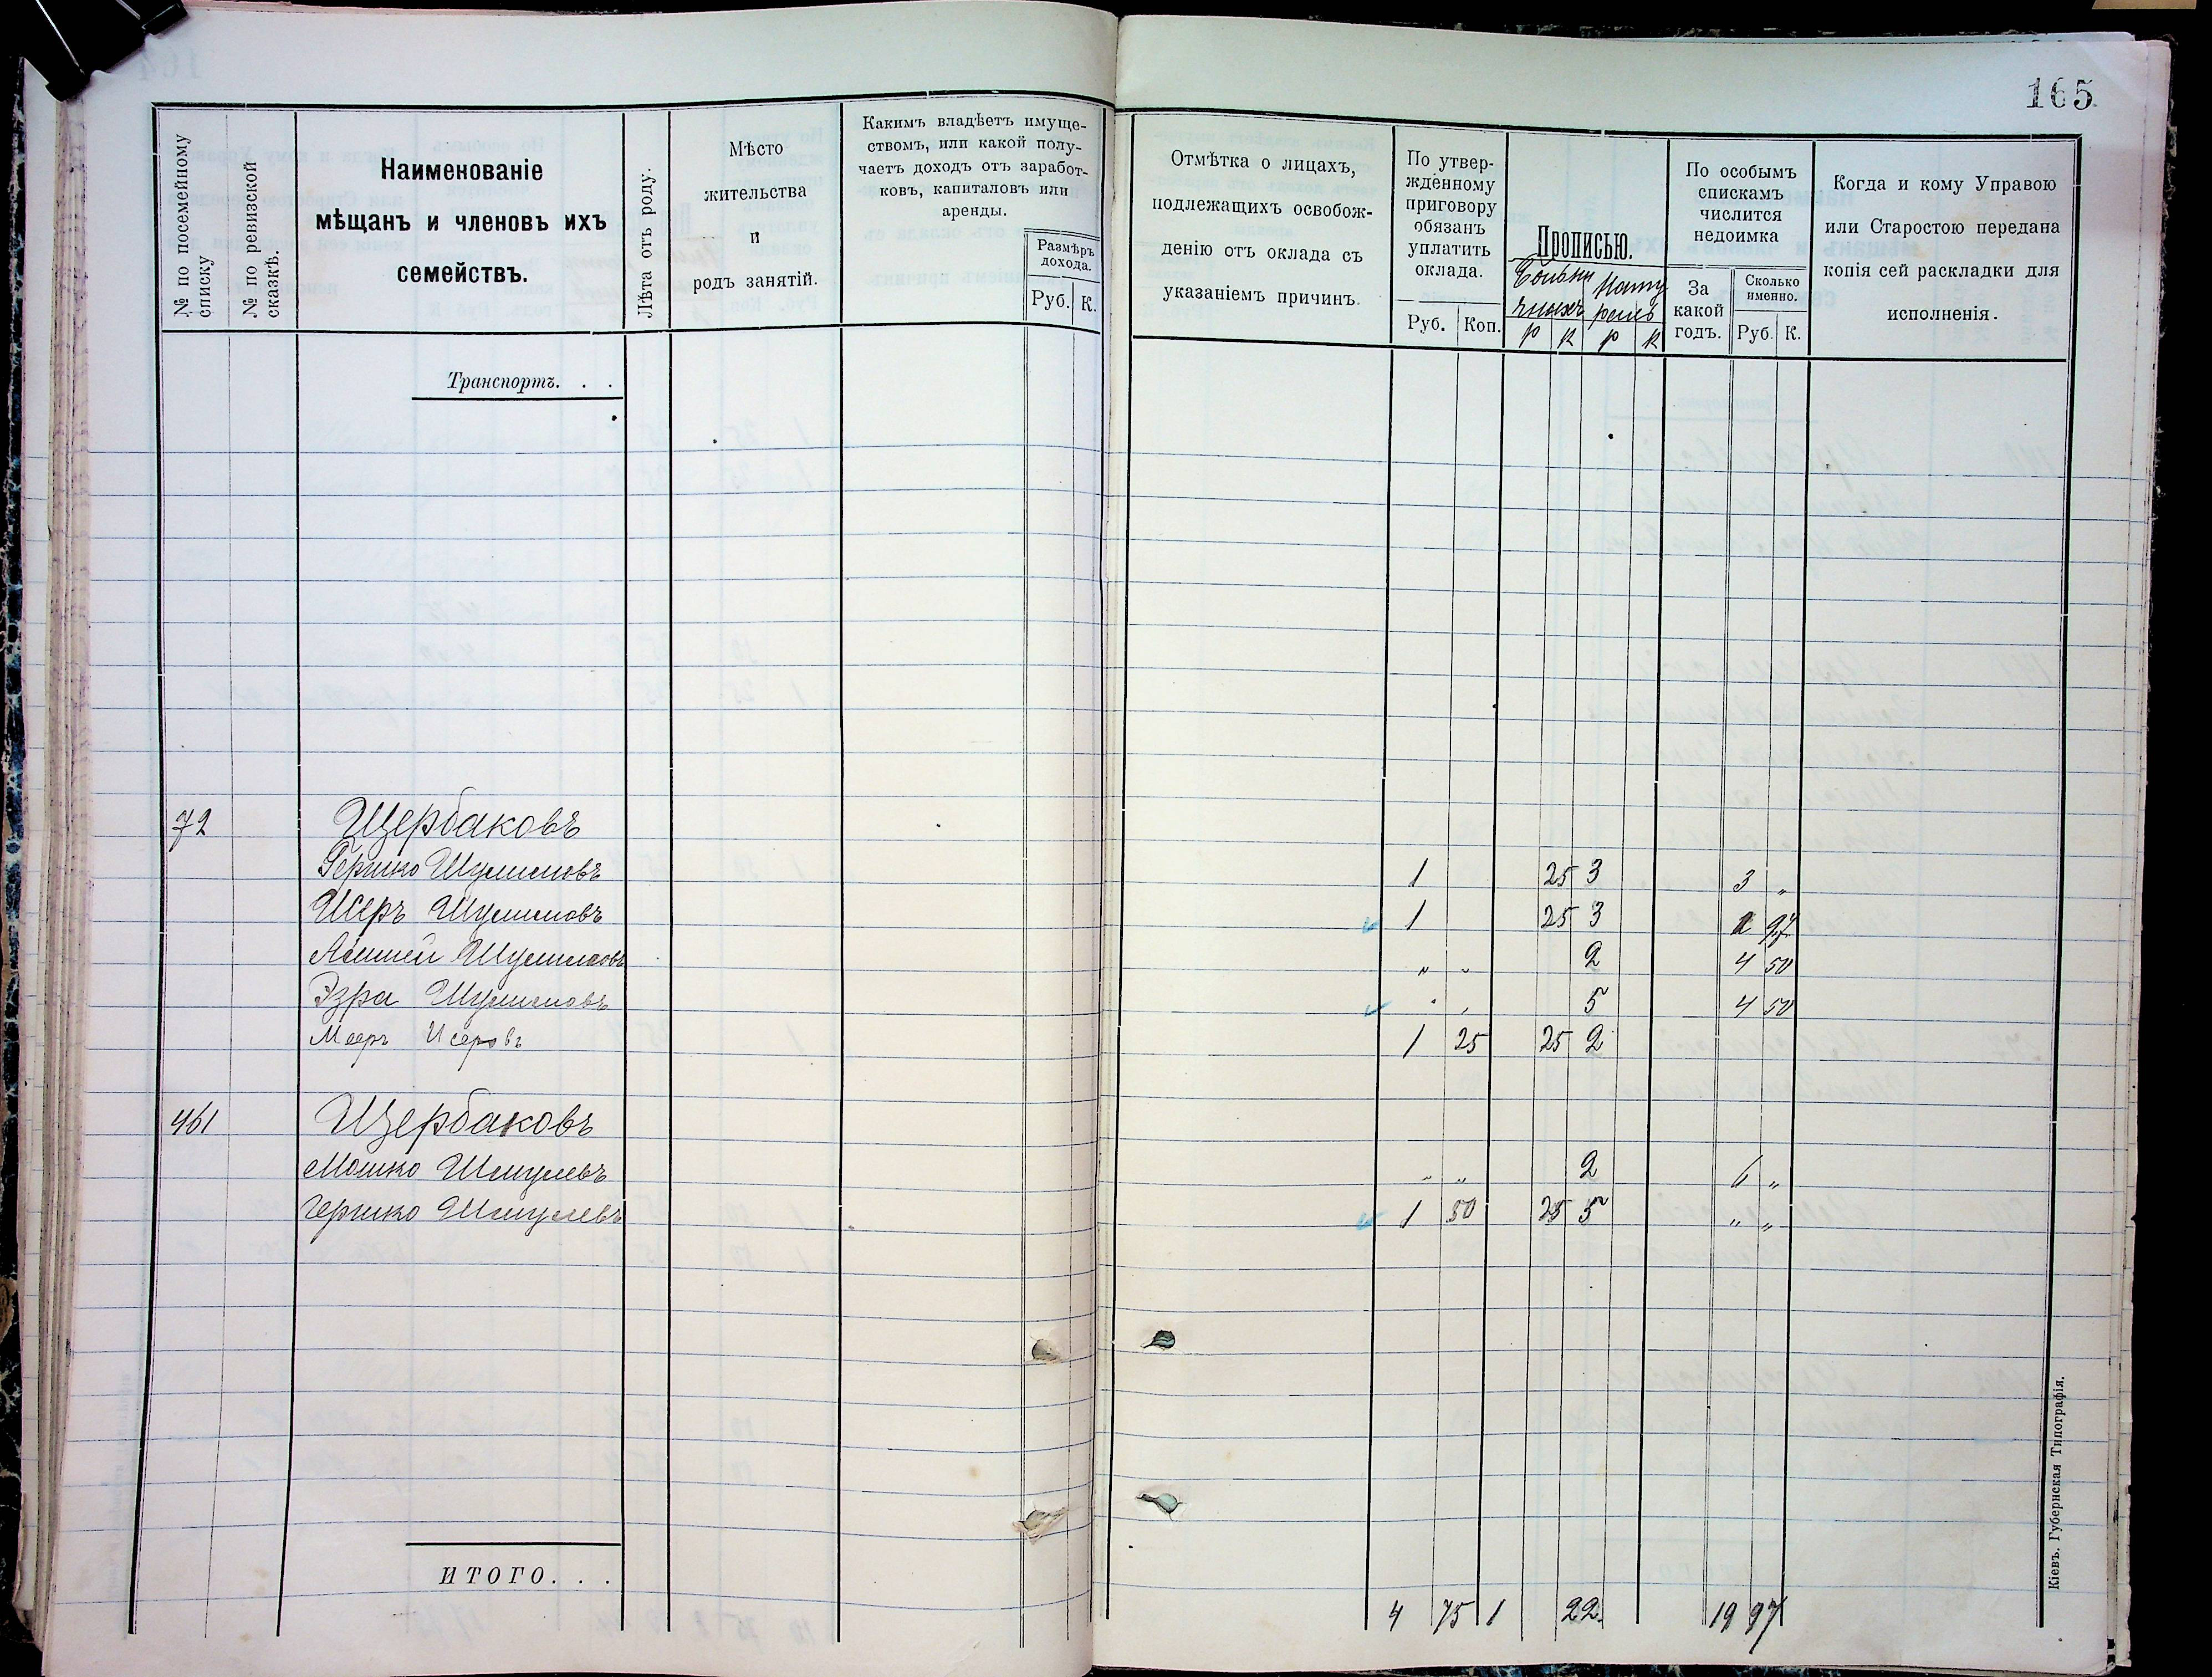 165
№ по посемейному списку
№ по ревизской сказкѣ.
Наименованіе
мѣщанъ и членовъ ихъ
семействъ.
Лѣта отъ роду.
Мѣсто
жительства
и
родъ занятій.
Какимъ владѣетъ имуще-
ствомъ, или какой полу-
чаетъ доходъ отъ заработ-
ковъ, капиталовъ или
аренды.
Размѣръ
дохода.
Руб. К.
Отмѣтка о лицахъ,
подлежащихъ освобож-
денію отъ оклада съ
указаніемъ причинъ.
По утвер-
жденному
приговору
обязанъ
уплатить
оклада.
Руб. Коп.
Прописью.
р к р к
По особымъ
спискамъ
числится
недоимка
За
какой
годъ.
Сколько
именно.
Руб. К.
Когда и кому Управою
или Старостою передана
копія сей раскладки для
исполненія.
Транспортъ. . .
72 Щербаковъ
Гершко Шулимовъ 1 25 3 3 „
Исеръ Шулимовъ 1 25 3 97
Шулимовъ „ „ 2 4 50
Эзра Шулимовъ 5 4 50
Мееръ Исеровъ 1 25 25 2
461 Щербаковъ
Мошко Шмулевъ „ „ 2 6 „
Гершко Шмулевъ 1 50 25 5 „ „
ИТОГО. . .
4 75 1 22 19 97
Кіевъ. Губернская Типографія.